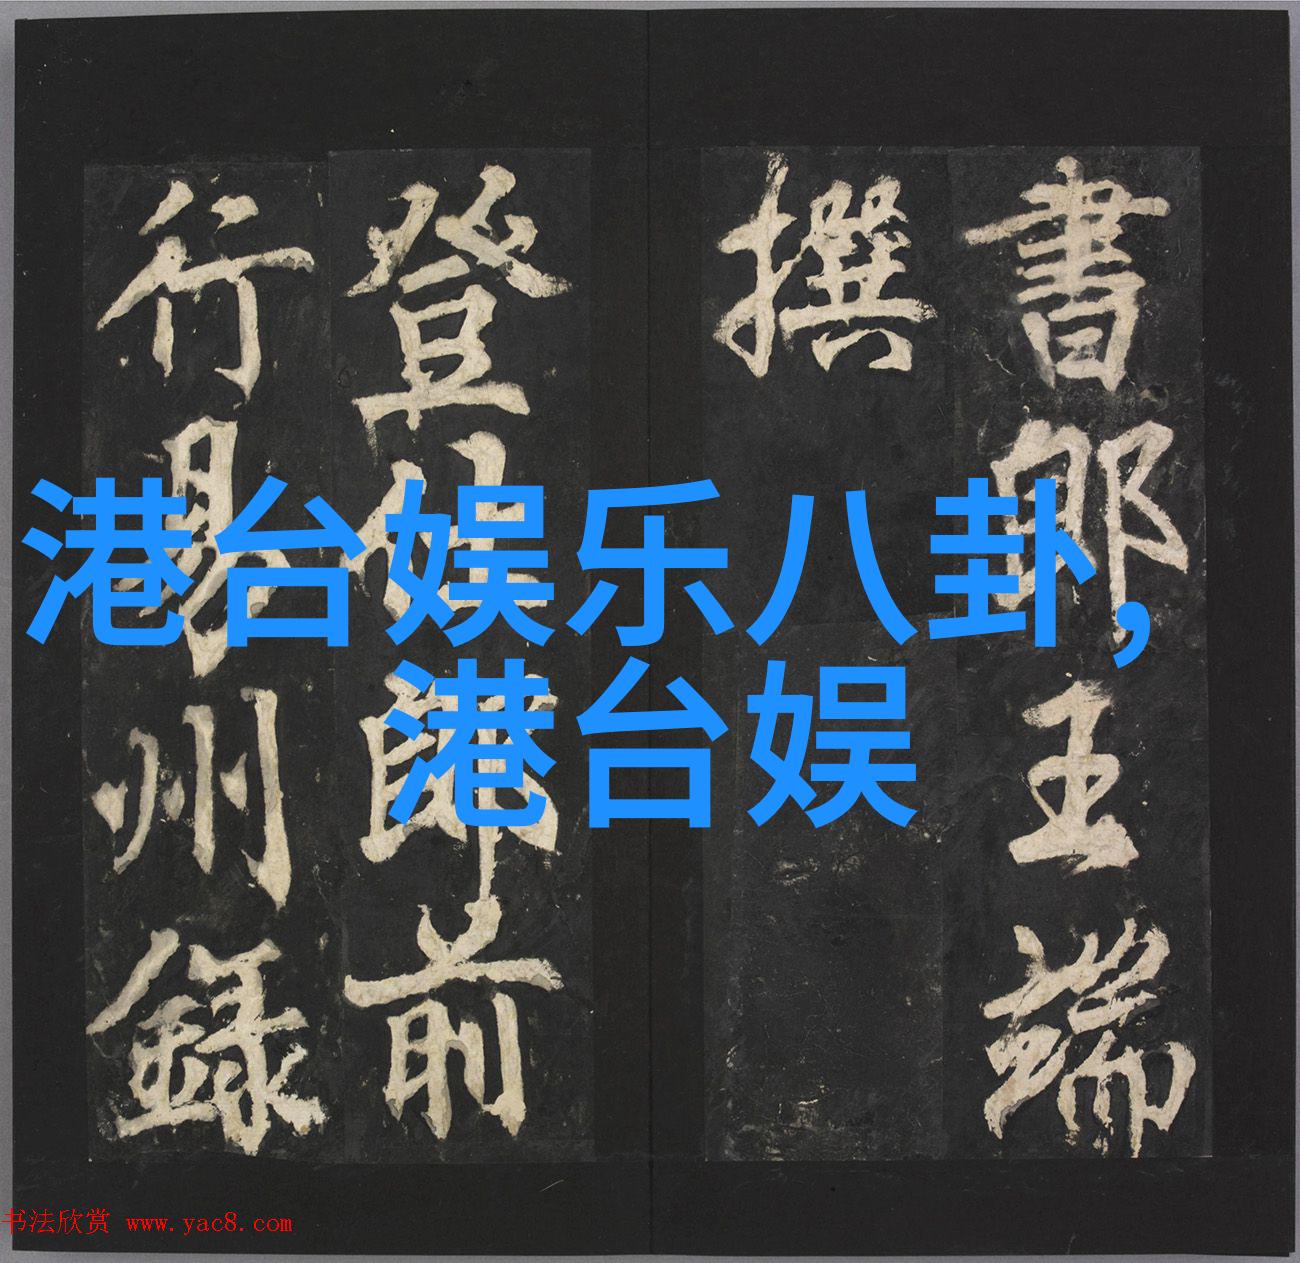 書郎王端
撰
登仕郎前
行易州錄
港台娱乐八卦,
港台娱
书法欣赏 www.yac8.com